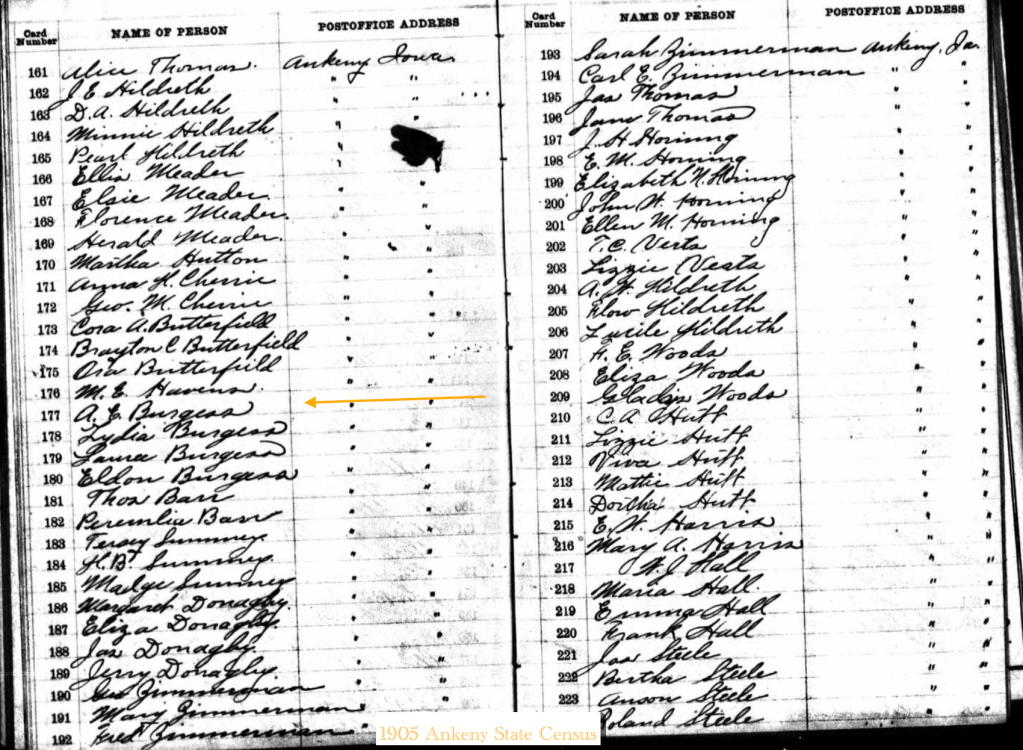 Card Number NAME OF PERSON POSTOFFICE ADDRESS
161 Alice Thomas. Ankeny Iowa.
162 J. E Hildreth " "
163 D. A. Hildreth " "
164 Minnie Hildreth "
165 Pearl Hildreth "
166 Ellis Meader " "
167 Elsie Meader. " "
168 Florence Meader. " "
169 Herald Meader. " "
170 Martha Hutton " "
171 Anna H. Cherrie " "
172 Geo. M. Cherrie " "
173 Cora A. Butterfield " "
174 Brayton C Butterfield " "
175 Ora Butterfield " "
176 M. E. Havens. " "
177 A. E. Burgess " "
178 Lydia Burgess " "
179 Laura Burgess " "
180 Eldon Burgess " "
181 Thos Barr " "
182 Barr " "
183 Summey " "
184 H. B. Summey. " "
185 Madge Summey " "
186 Margaret Donaghy. " "
187 Eliza Donaghy. " "
188 Jas Donaghy. " "
189 Jerry Donaghy. " "
190 Geo Zimmerman " "
191 Mary Zimmerman " "
192 Fred Zimmerman " "
Card Number NAME OF PERSON POSTOFFICE ADDRESS
193 Sarah Zimmerman Ankeny, Ia.
194 Carl E. Zimmerman " "
195 Jas Thomas " "
196 Jane Thomas " "
197 J. H Horning " "
198 E. M. Horning " "
199 Elizabeth N. Horning " "
200 John W. Horning " "
201 Ellen M. Horning " "
202 T. C. Vesta " "
203 Lizzie Vesta " "
204 A. W. Hildreth " "
205 Flow Hildreth " "
206 Lucile Hildreth " "
207 H. E. Woods " "
208 Eliza Woods " "
209 Gladys Woods " "
210 C. A Hutt " "
211 Lizzie Hutt " "
212 Viva Hutt " "
213 Mattie Hutt " "
214 Dortha Hutt " "
215 E. W. Harris " "
216 Mary A. Harris " "
217 W. J. Hall " "
218 Maria Hall " "
219 Emma Hall " "
220 Frank Hall " "
221 Jas Steele " "
222 Bertha Steele " "
223 Anson Steele " "
Roland Steele " "
1905 Ankeny State Census